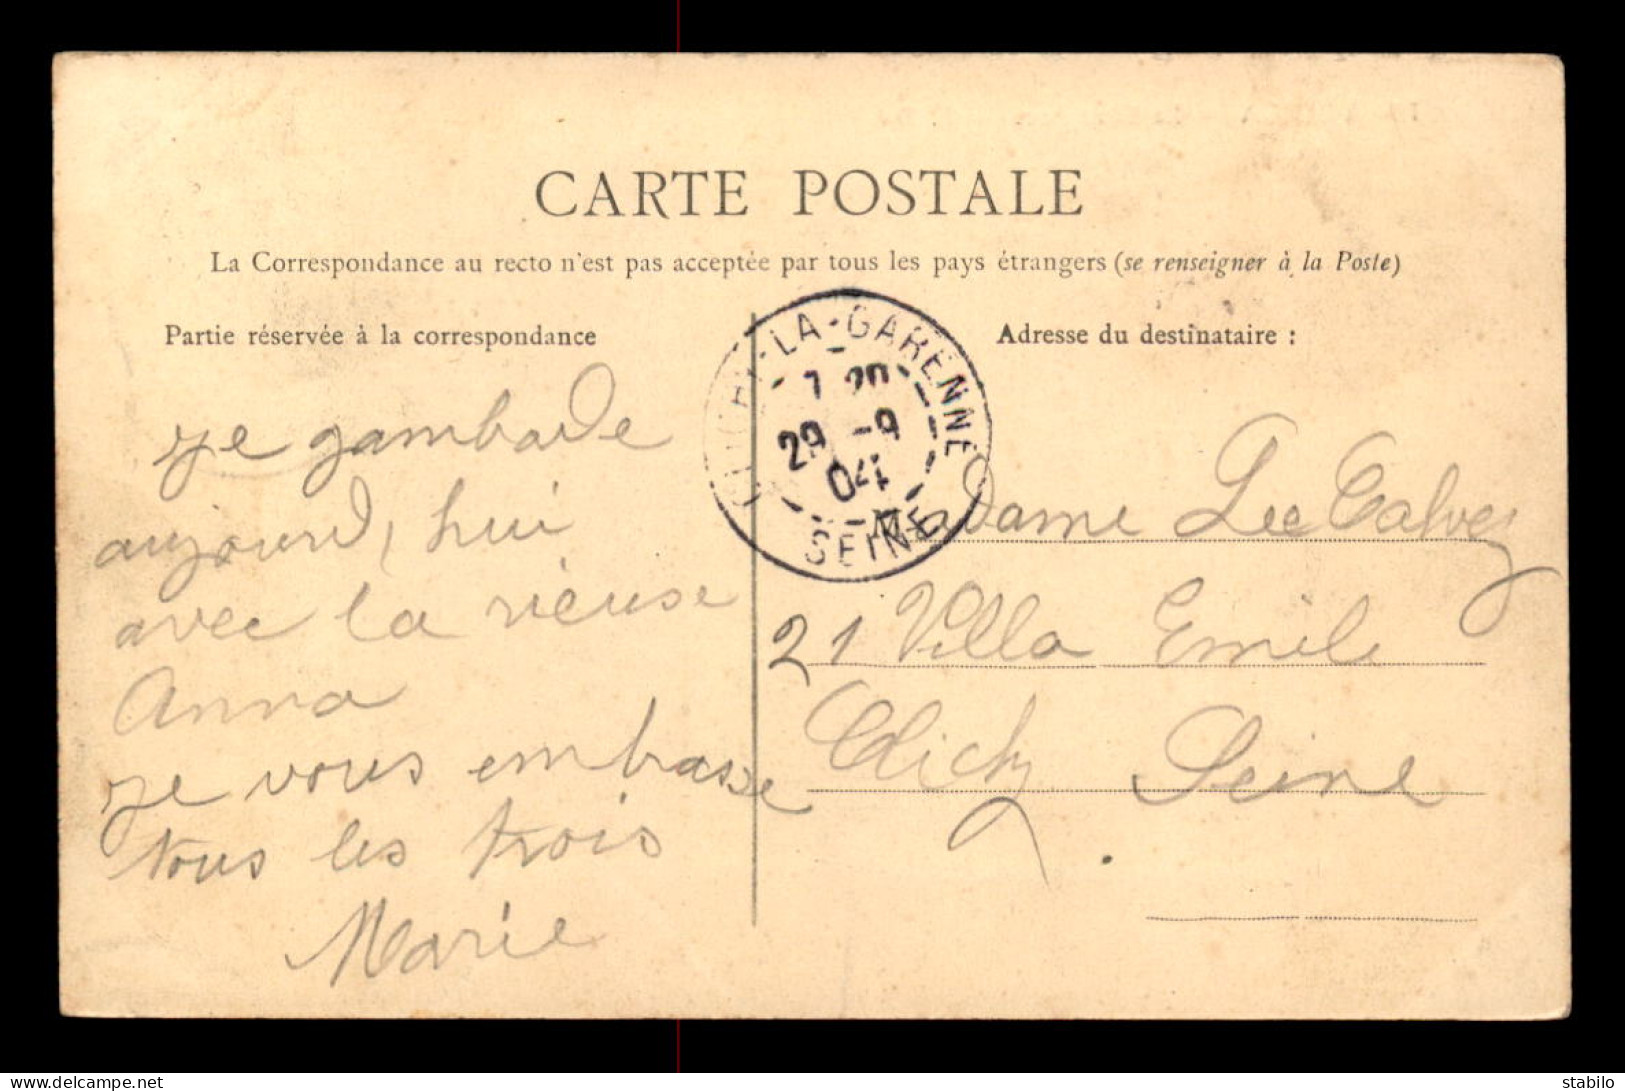 CARTE POSTALE
La Correspondance au recto n'est pas acceptée par tous les pays étrangers (se renseigner à la Poste)
Partie réservée à la correspondance
je gambade
aujourd, hui
avec la rieuse
Anna
je vous embrasse
tous les trois
Marie
CLICHY-LA-GARENNE
7 20
29 -9
04
SEINE
Adresse du destinataire :
Madame Le Calvez
21 Villa Emile
Clichy Seine.
www.delcampe.net
stabilo